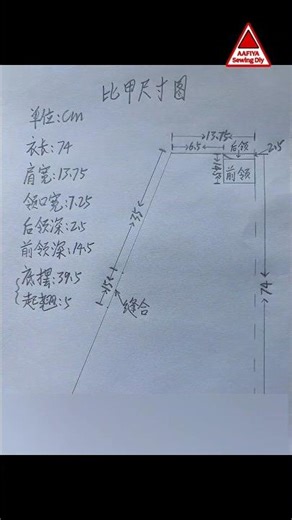 AAFIYA
Sewing Diy
比甲尺寸图
单位:cm
衣长:74
肩宽:13.75
领口宽:7.25
后领深:2.5
前领深:14.5
底摆:39.5
起翘:5
13.75
6.5
后领
2.5
14.5
前领
35
15
缝合
74